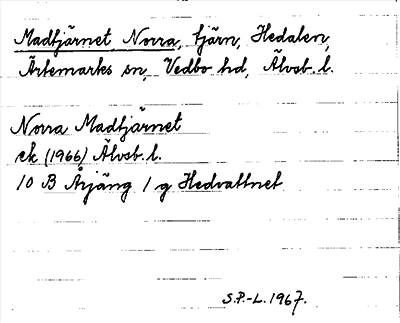 Madtjärnet, Norra, tjärn, Hedalen,
Ärtemarks sn, Vedbo hd, Älvsb. l.
Norra Madtjärnet
ek (1966) Älvsb. l.
10 B Årjäng 1 g Hedvattnet
S.P.-L. 1967.